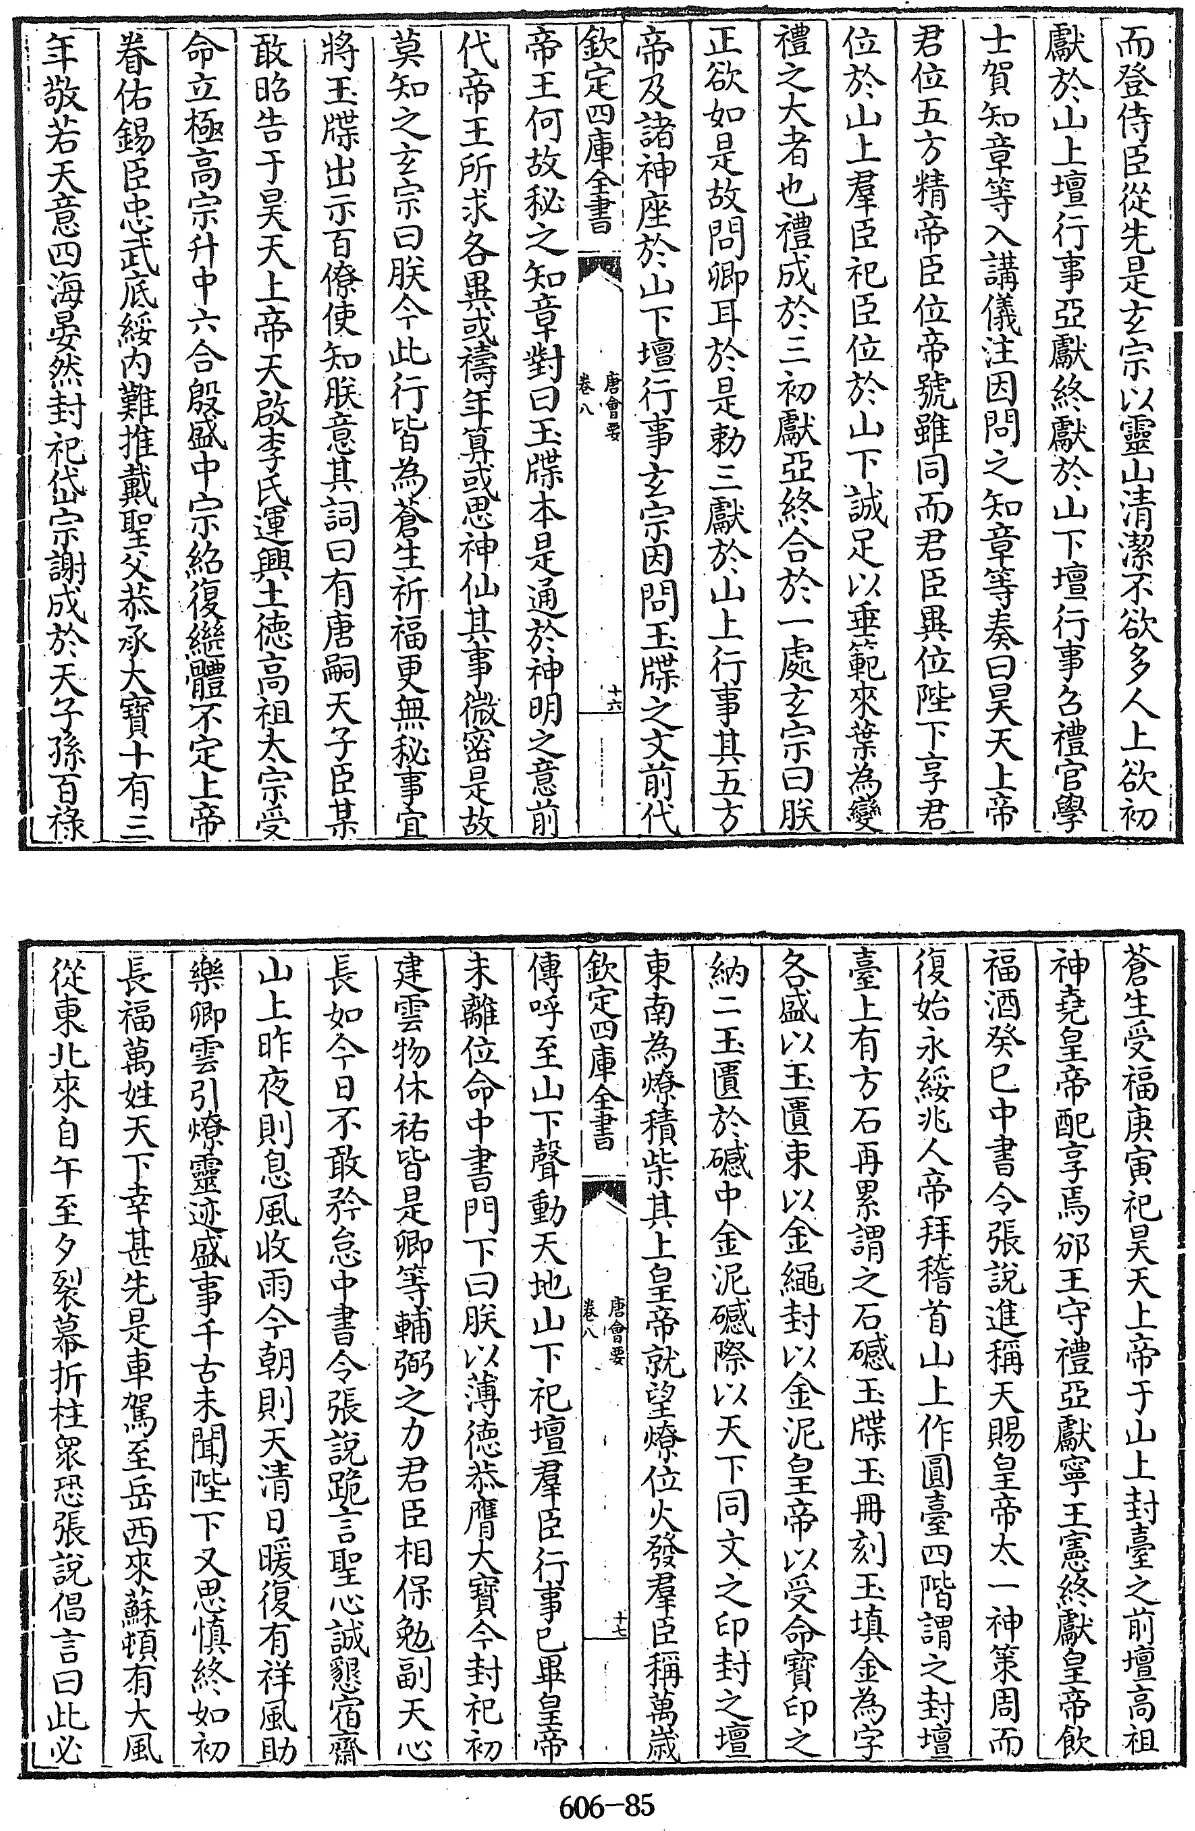 而登侍臣從先是玄宗以靈山清潔不欲多人上欲初
獻於山上壇行事亞獻終獻於山下壇行事召禮官學
士賀知章等入講儀注因問之知章等奏曰昊天上帝
君位五方精帝臣位帝號雖同而君臣異位陛下享君
位於山上羣臣祀臣位於山下誠足以垂範來葉為變
禮之大者也禮成於三初獻亞終合於一處玄宗曰朕
正欲如是故問卿耳於是勅三獻於山上行事其五方
帝及諸神座於山下壇行事玄宗因問玉牒之文前代
欽定四庫全書
唐會要
卷八
十六
帝王何故秘之知章對曰玉牒本是通於神明之意前
代帝王所求各異或禱年算或思神仙其事微密是故
莫知之玄宗曰朕今此行皆為蒼生祈福更無秘事宜
將玉牒出示百僚使知朕意其詞曰有唐嗣天子臣某
敢昭告于昊天上帝天啟李氏運興土德高祖太宗受
命立極高宗升中六合殷盛中宗紹復繼體不定上帝
眷佑錫臣忠武底綏内難推戴聖父恭承大寶十有三
年敬若天意四海晏然封祀岱宗謝成於天子孫百祿
蒼生受福庚寅祀昊天上帝于山上封臺之前壇高祖
神堯皇帝配享焉邠王守禮亞獻寧王憲終獻皇帝飲
福酒癸巳中書令張說進稱天賜皇帝太一神策周而
復始永綏兆人帝拜稽首山上作圓臺四階謂之封壇
臺上有方石再累謂之石䃭玉牒玉冊刻玉填金為字
各盛以玉匱束以金繩封以金泥皇帝以受命寶印之
納二玉匱於䃭中金泥䃭際以天下同文之印封之壇
東南為燎積柴其上皇帝就望燎位火發羣臣稱萬歲
欽定四庫全書
唐會要
卷八
十七
傳呼至山下聲動天地山下祀壇羣臣行事已畢皇帝
未離位命中書門下曰朕以薄德恭膺大寶今封祀初
建雲物休祐皆是卿等輔弼之力君臣相保勉副天心
長如今日不敢矜怠中書令張說跪言聖心誠懇宿齋
山上昨夜則息風收雨今朝則天清日暖復有祥風助
樂卿雲引燎靈迹盛事千古未聞陛下又思慎終如初
長福萬姓天下幸甚先是車駕至岳西來蘇頓有大風
從東北來自午至夕裂幕折柱衆恐張說倡言曰此必
606-85